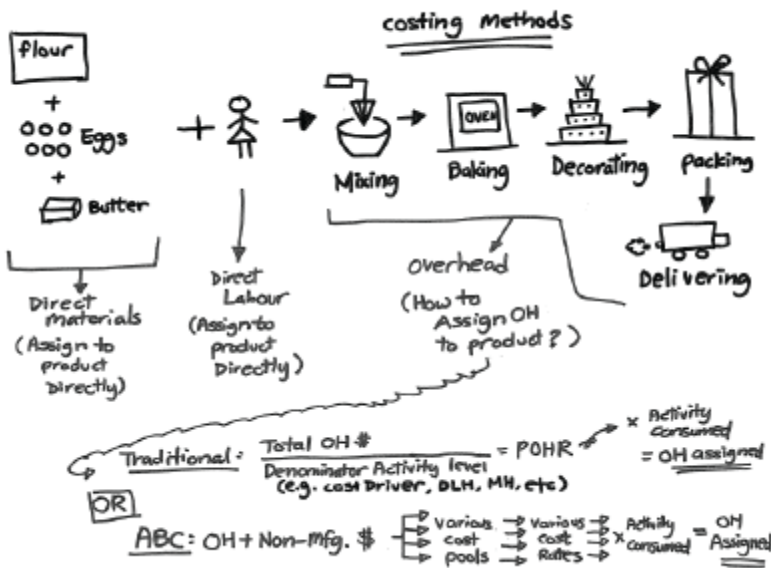 costing methods
flour
+
Eggs
+
Butter
+
OVEN
Mixing
Baking
Decorating
packing
Delivering
Direct
materials
(Assign to
product
Directly)
Direct
Labour
(Assign to
product
Directly)
Overhead
(How to
Assign OH
to product?)
Traditional: Total OH $
Denominator Activity level
(e.g. cost Driver, DLH, MH, etc)
= POHR
x Activity
consumed
= OH assigned
OR
ABC: OH + Non-mfg. $
various
cost
pools
various
cost
Rates
x Activity
consumed
= OH
Assigned